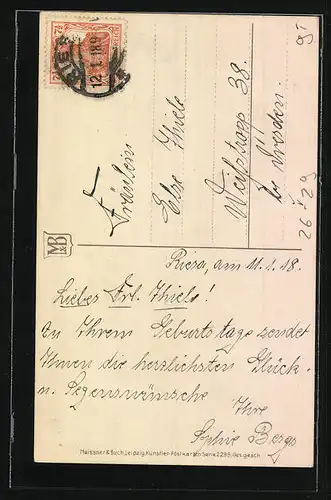 RIESA
12.1.18.9
7½
Fräulein
Else Thiele
Weißtropp 38.
bei Dresden.
M&B
Riesa, am 11.1.18.
Liebes Frl. Thiele!
Zu Ihrem Geburtstage sendet
Ihnen die herzlichsten Glück-
u. Segenswünsche
Ihre
Sophie Berge
Meissner & Buch, Leipzig, Künstler-Postkarten Serie 2298, Ges. gesch.